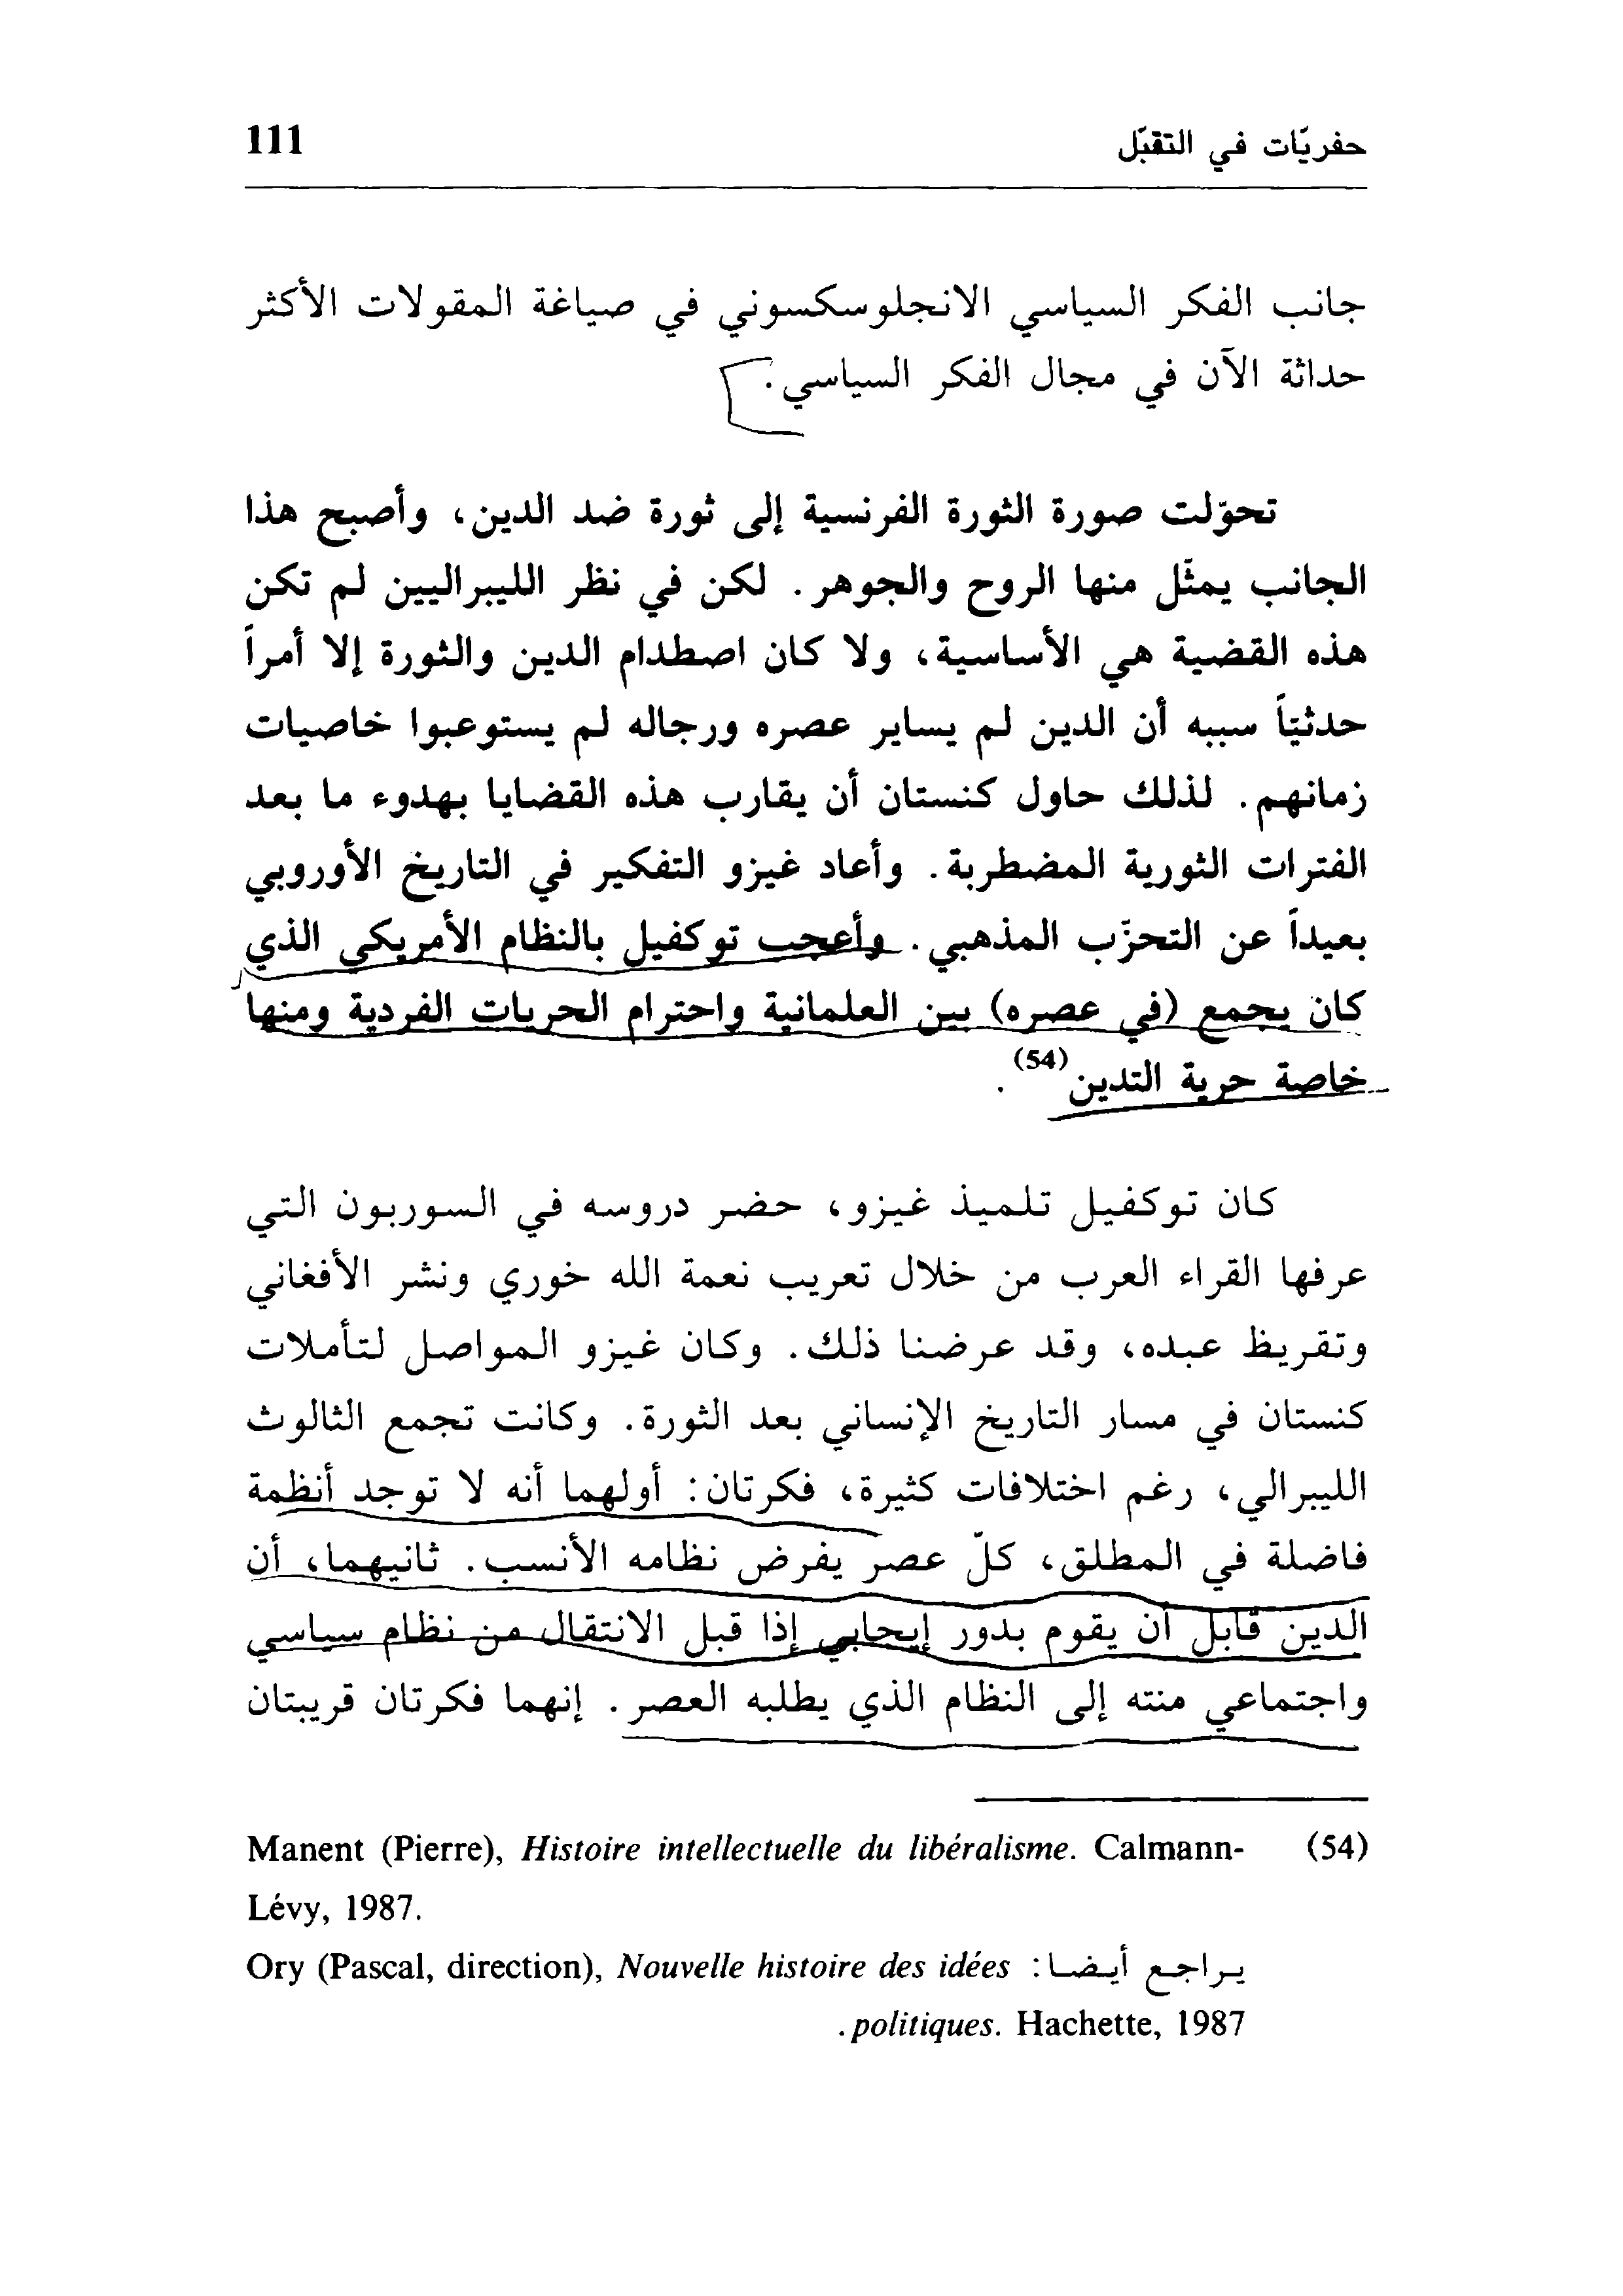 حفريّات في التقبّل 111
جانب الفكر السياسي الانجلوسكسوني في صياغة المقولات الأكثر
حداثة الآن في مجال الفكر السياسي.
تحوّلت صورة الثورة الفرنسية إلى ثورة ضد الدين، وأصبح هذا
الجانب يمثّل منها الروح والجوهر. لكن في نظر الليبراليين لم تكن
هذه القضية هي الأساسية، ولا كان اصطدام الدين والثورة إلا أمراً
حدثيّاً سببه أن الدين لم يساير عصره ورجاله لم يستوعبوا خاصيات
زمانهم. لذلك حاول كنستان أن يقارب هذه القضايا بهدوء ما بعد
الفترات الثورية المضطربة. وأعاد غيزو التفكير في التاريخ الأوروبي
بعيداً عن التحزّب المذهبي. وأعجب توكفيل بالنظام الأمريكي الذي
كان يجمع (في عصره) بين العلمانية واحترام الحريات الفردية ومنها
خاصة حرية التدين(54).
كان توكفيل تلميذ غيزو، حضر دروسه في السوربون التي
عرفها القراء العرب من خلال تعريب نعمة الله خوري ونشر الأفغاني
وتقريظ عبده، وقد عرضنا ذلك. وكان غيزو المواصل لتأملات
كنستان في مسار التاريخ الإنساني بعد الثورة. وكانت تجمع الثالوث
الليبرالي، رغم اختلافات كثيرة، فكرتان: أولهما أنه لا توجد أنظمة
فاضلة في المطلق، كلّ عصر يفرض نظامه الأنسب. ثانيهما، أن
الدين قابل أن يقوم بدور إيجابي إذا قبل الانتقال من نظام سياسي
واجتماعي منته إلى النظام الذي يطلبه العصر. إنهما فكرتان قريبتان
(54) Manent (Pierre), Histoire intellectuelle du libéralisme. Calmann-
Lévy, 1987.
يراجع أيضا: Ory (Pascal, direction), Nouvelle histoire des idées
politiques. Hachette, 1987.